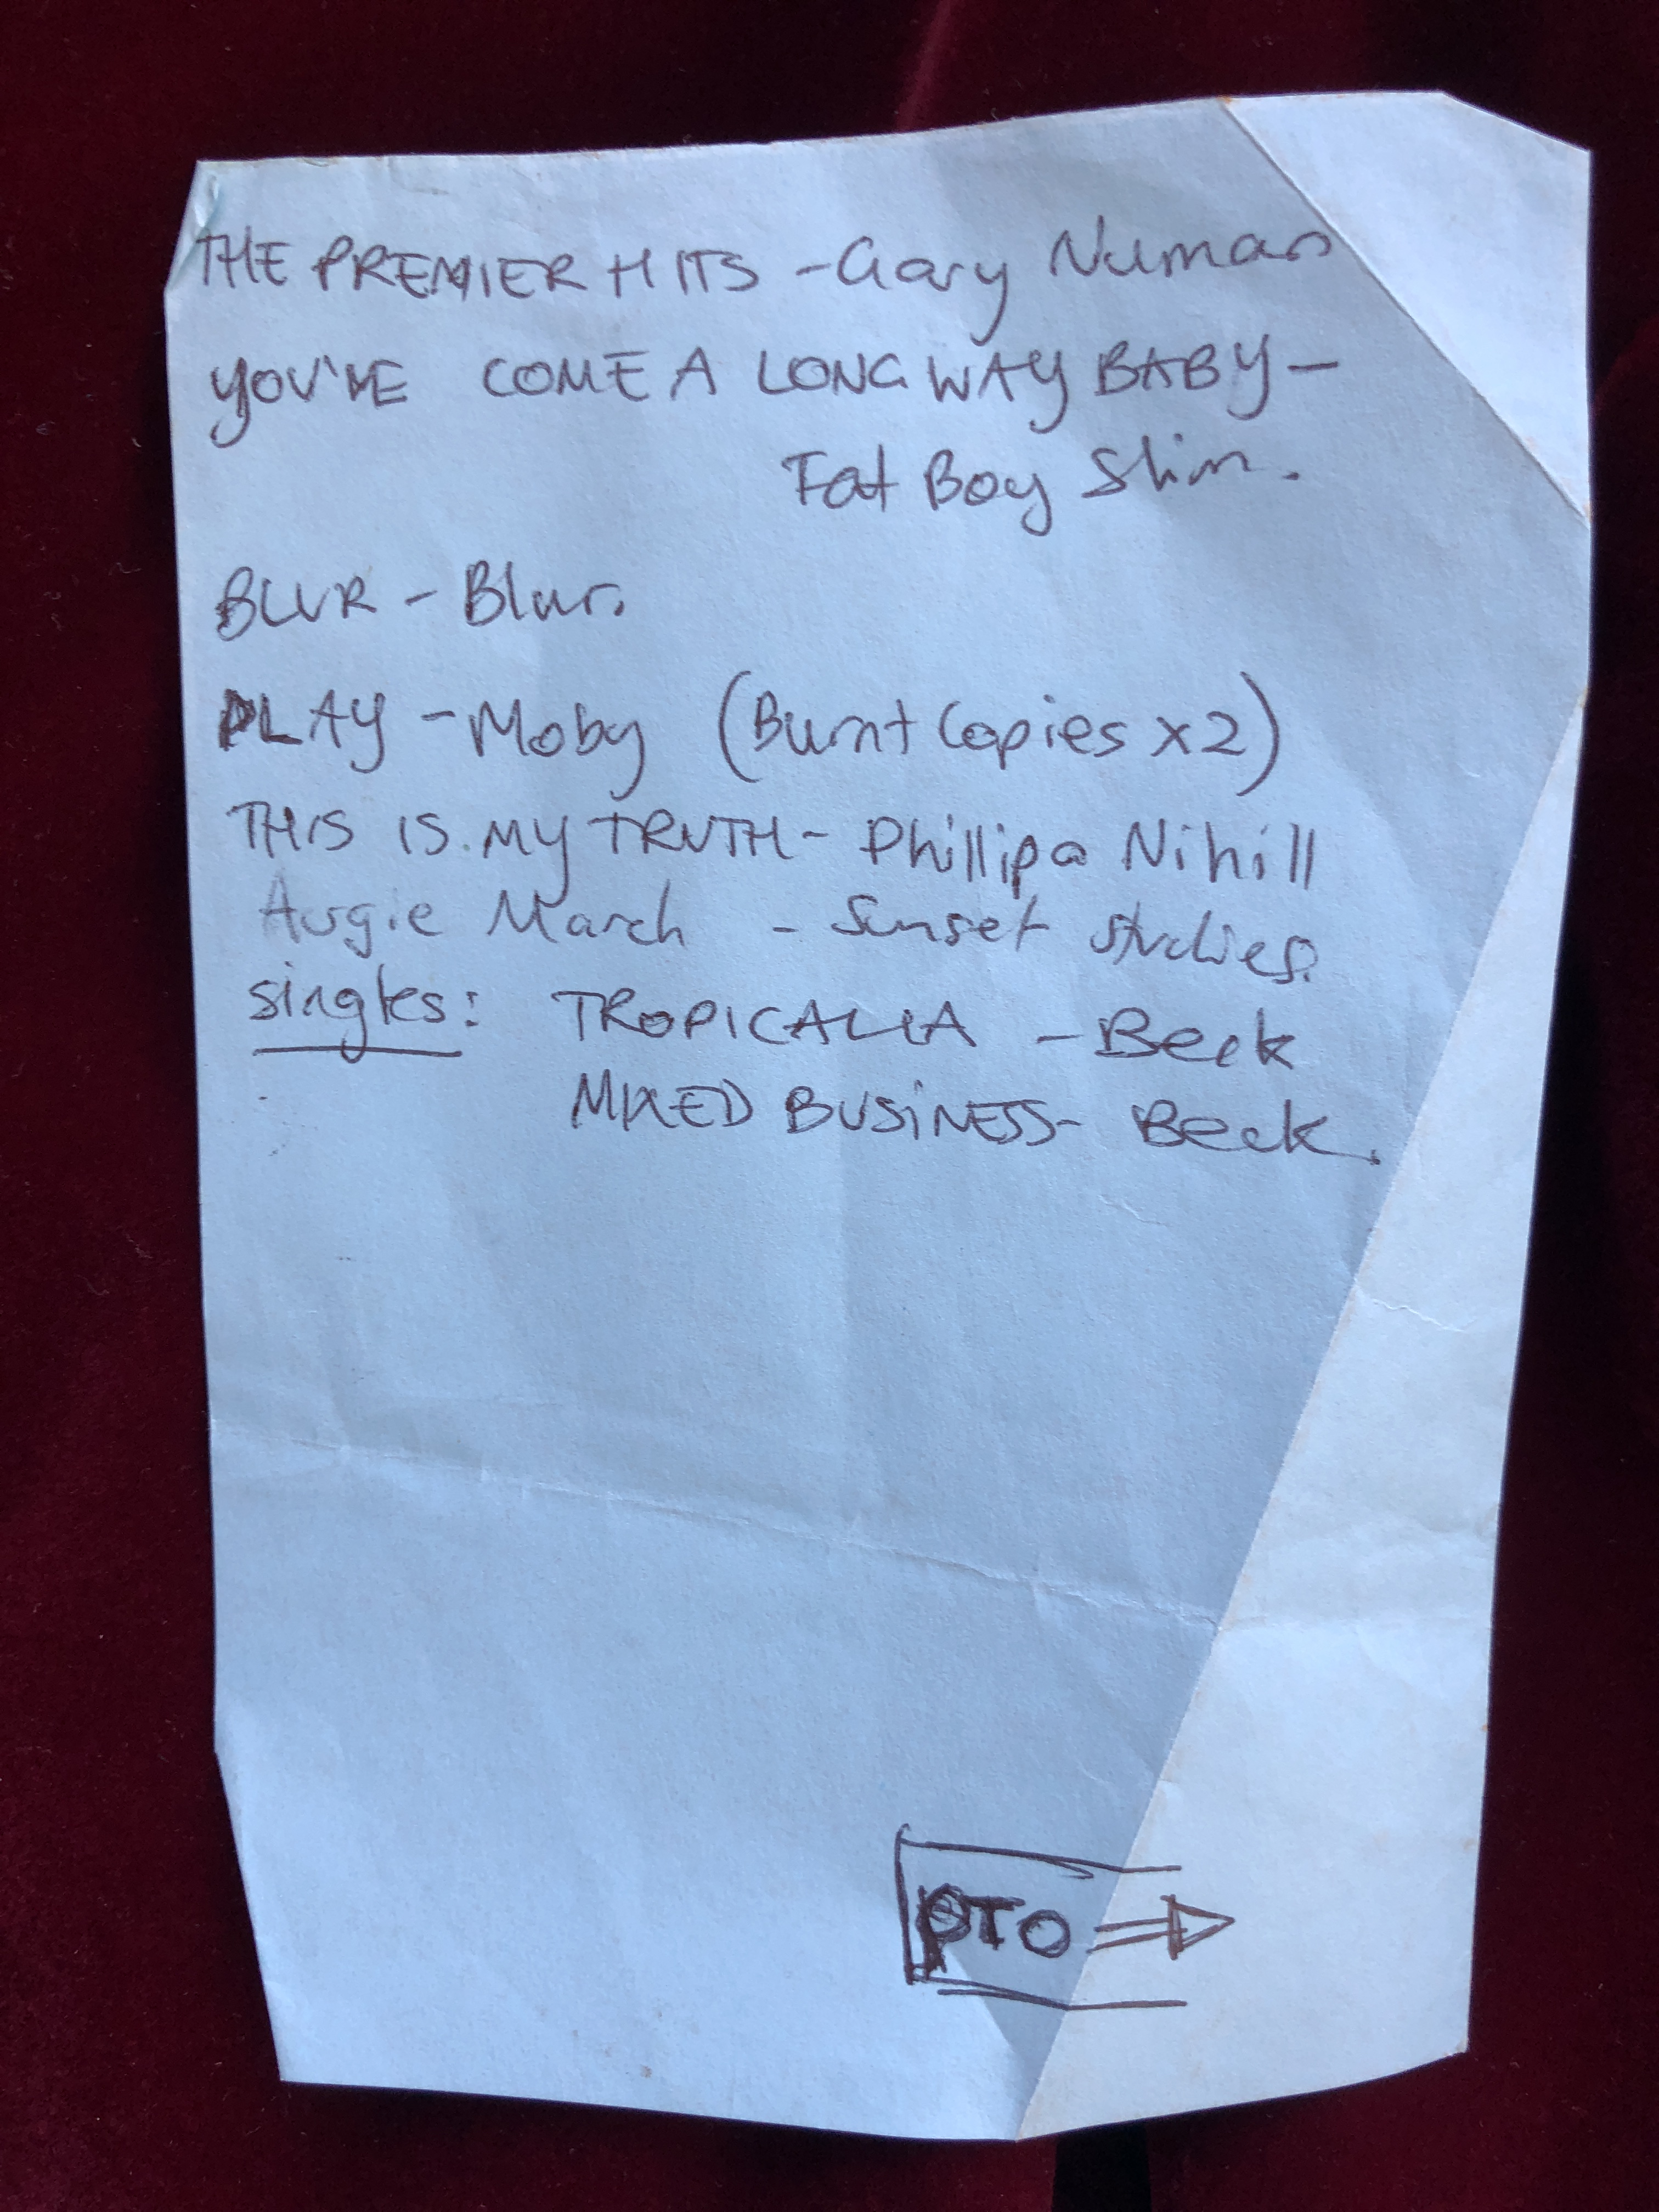 THE PREMIER HITS - Gary Numan
YOU'VE COME A LONG WAY BABY -
Fat Boy Slim.
BLUR - Blur.
PLAY - Moby (Burnt Copies x2)
THIS IS MY TRUTH - Phillipa Nihill
Augie March - Sunset studies.
singles: TROPICALIA - Beck
MIXED BUSINESS - Beck.
PTO